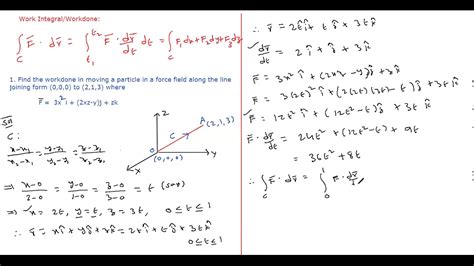 Work Integral/Workdone:
∫_C F̄ · dr̄ = ∫_{t₁}^{t₂} F̄ · dr̄/dt dt = ∫_C F₁dx + F₂dy + F₃dz
1. Find the workdone in moving a particle in a force field along the line
joining form (0,0,0) to (2,1,3) where
F̄ = 3x²i + (2xz-y)j + zk
Sol
C :
(x-x₁)/(x₂-x₁) = (y-y₁)/(y₂-y₁) = (z-z₁)/(z₂-z₁)
⇒ (x-0)/(2-0) = (y-0)/(1-0) = (z-0)/(3-0) = t (say)
⇒ x = 2t, y = t, z = 3t, 0 ≤ t ≤ 1
∴ r̄ = xî + yĵ + zk̂ = 2tî + tĵ + 3tk̂
0 ≤ t ≤ 1
Z
A (2,1,3)
C
O
(0,0,0)
Y
X
∴ r̄ = 2tî + tĵ + 3tk̂
dr̄/dt = 2î + ĵ + 3k̂
F̄ = 3x²î + (2xz-y)ĵ + zk̂
F̄ = 3(2t)²î + (2(2t)(3t) - t)ĵ + 3tk̂
F̄ = 12t²î + (12t²-t)ĵ + 3tk̂
F̄ · dr̄/dt = 24t² + (12t²-t) + 9t
= 36t² + 8t
∴ ∫_C F̄ · dr̄ = ∫₀¹ F̄ · dr̄/